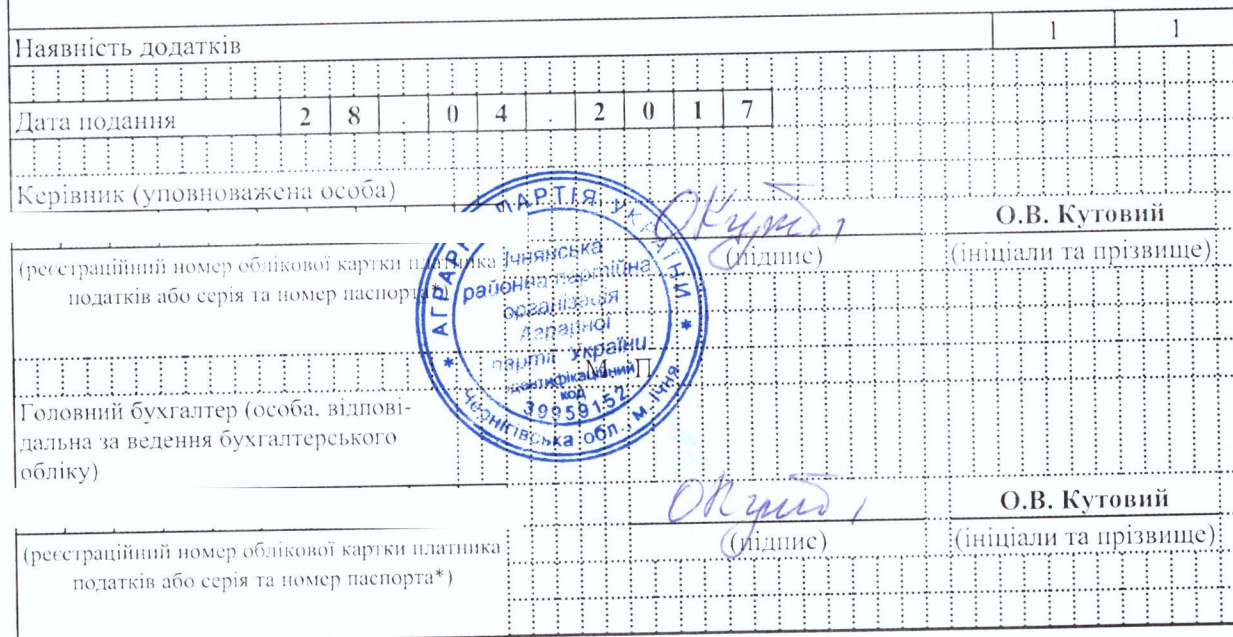 Наявність додатків 1 1
Дата подання 2 8 . 0 4 . 2 0 1 7
Керівник (уповноважена особа)
О.В. Кутовий
(реєстраційний номер облікової картки платника
податків або серія та номер паспорта*)
(підпис)
(ініціали та прізвище)
АГРАРНА ПАРТІЯ УКРАЇНИ
Ічнянська
районна партійна
організація
Аграрної
партії України
Ідентифікаційний
код
39959152
Чернігівська обл., м. Ічня
М. П.
Головний бухгалтер (особа, відпові-
дальна за ведення бухгалтерського
обліку)
О.В. Кутовий
(реєстраційний номер облікової картки платника
податків або серія та номер паспорта*)
(підпис)
(ініціали та прізвище)